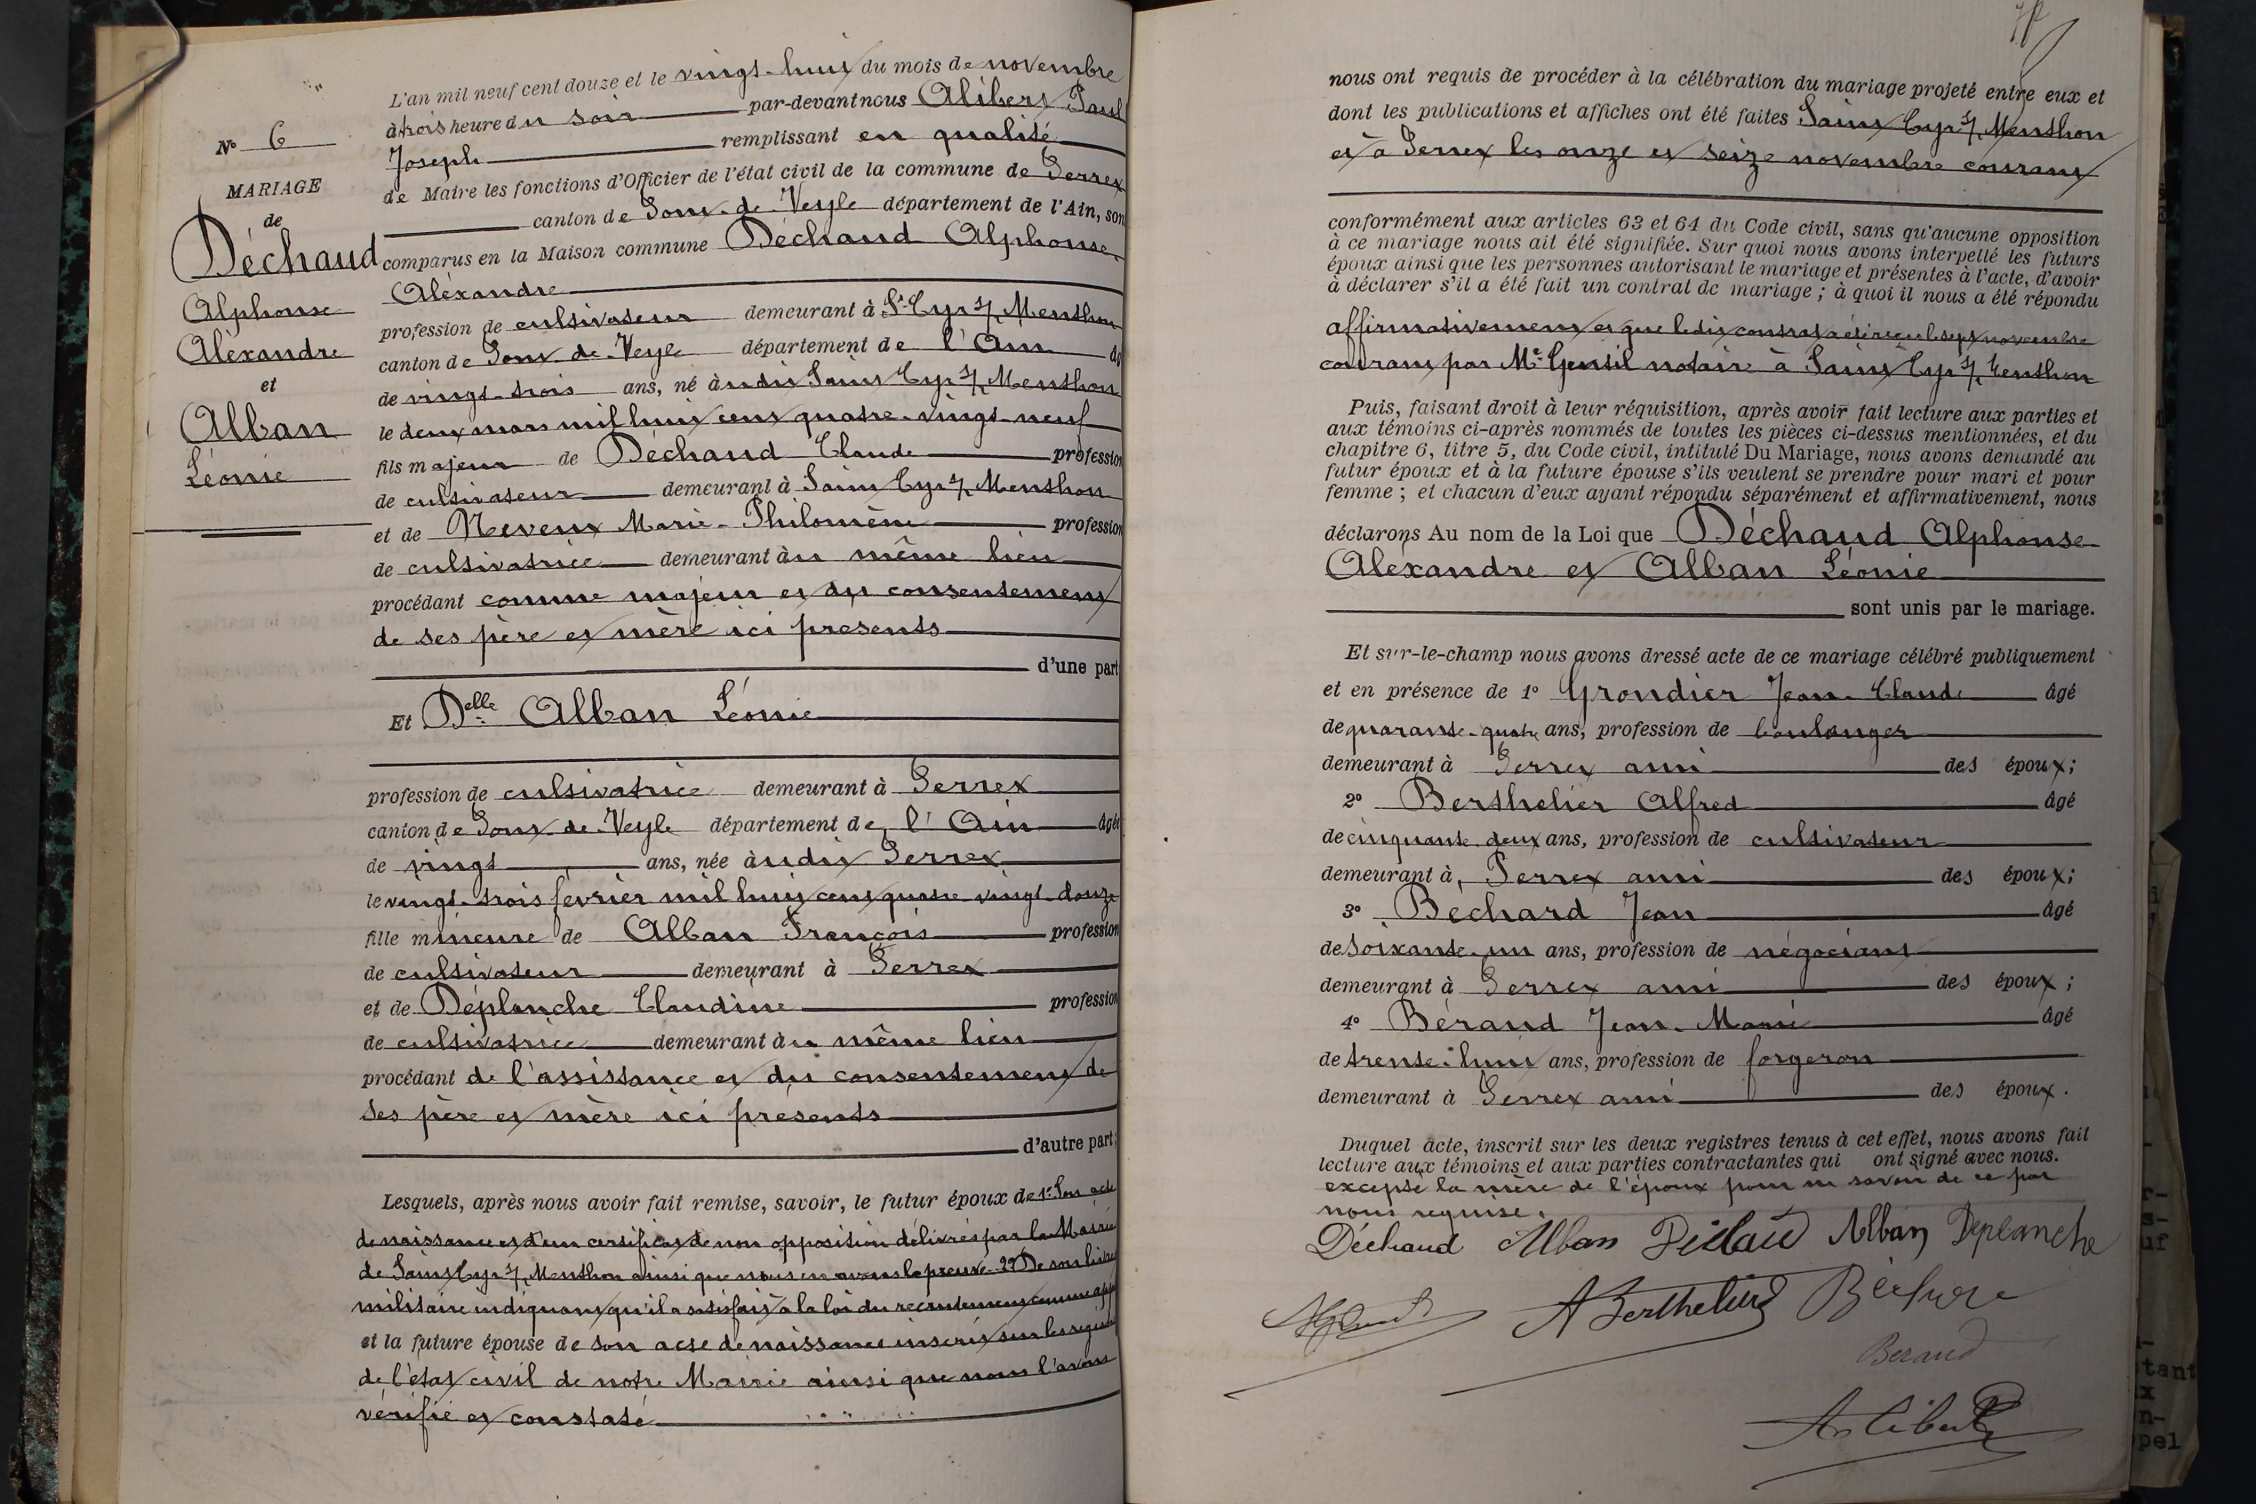 L'an mil neuf cent douze et le vingt-huit du mois de novembre
à trois heure du soir par-devant nous Alibert Paul
Joseph remplissant en qualité
de Maire les fonctions d'Officier de l'état civil de la commune de Perrex
canton de Pont-de-Veyle département de l'Ain, son
comparus en la Maison commune Déchaud Alphonse
Alexandre
profession de cultivateur demeurant à St-Cyr s/ Menthon
canton de Pont-de-Veyle département de l'Ain
de vingt-trois ans, né à udit Saint Cyr s/ Menthon
le deux mars mil huit cent quatre-vingt-neuf
fils majeur de Déchaud Claude profession
de cultivateur demeurant à Saint Cyr s/ Menthon
et de Neveux Marie-Philomène profession
de cultivatrice demeurant àu même lieu
procédant comme majeur et du consentement
de ses père et mère ici présents
d'une part
Et Delle Alban Léonie
profession de cultivatrice demeurant à Perrex
canton de Pont-de-Veyle département de l'Ain âgée
de vingt ans, née àudit Perrex
le vingt-trois février mil huit cent quatre vingt-douze
fille mineure de Alban François profession
de cultivateur demeurant à Perrex
et de Déplanche Claudine profession
de cultivatrice demeurant àu même lieu
procédant de l'assistance et du consentement de
ses père et mère ici présents
d'autre part;
Lesquels, après nous avoir fait remise, savoir, le futur époux de 1° Son acte
de naissance et d'un certificat de non opposition délivrés par la Mairie
de Saint Cyr s/ Menthon ainsi que nous en avons la preuve - 2° De son livret
militaire indiquant qu'il a satisfait à la loi du recrutement comme
et la future épouse de son acte de naissance inscrit sur les
de l'état civil de notre Mairie ainsi que nous l'avons
vérifié et constaté
N° 6
MARIAGE
de
Déchaud
Alphonse
Alexandre
et
Alban
Léonie
nous ont requis de procéder à la célébration du mariage projeté entre eux et
dont les publications et affiches ont été faites Saint Cyr s/ Menthon
et à Perrex les onze et seize novembre courant
conformément aux articles 63 et 64 du Code civil, sans qu'aucune opposition
à ce mariage nous ait été signifiée. Sur quoi nous avons interpellé les futurs
époux ainsi que les personnes autorisant le mariage et présentes à l'acte, d'avoir
à déclarer s'il a été fait un contrat de mariage ; à quoi il nous a été répondu
affirmativement et que ledit contrat a été reçu le sept novembre
courant par Me Gentil notaire à Saint Cyr s/ Menthon
Puis, faisant droit à leur réquisition, après avoir fait lecture aux parties et
aux témoins ci-après nommés de toutes les pièces ci-dessus mentionnées, et du
chapitre 6, titre 5, du Code civil, intitulé Du Mariage, nous avons demandé au
futur époux et à la future épouse s'ils veulent se prendre pour mari et pour
femme ; et chacun d'eux ayant répondu séparément et affirmativement, nous
déclarons Au nom de la Loi que Déchaud Alphonse
Alexandre et Alban Léonie
sont unis par le mariage.
Et sur-le-champ nous avons dressé acte de ce mariage célébré publiquement
et en présence de 1° Grondier Jean-Claude âgé
de quarante-quatre ans, profession de boulanger
demeurant à Perrex ami des époux;
2° Berthelier Alfred âgé
de cinquante-deux ans, profession de cultivateur
demeurant à Perrex ami des époux;
3° Bechard Jean âgé
de soixante-un ans, profession de négociant
demeurant à Perrex ami des époux ;
4° Béraud Jean-Marie âgé
de trente-huit ans, profession de forgeron
demeurant à Perrex ami des époux.
Duquel acte, inscrit sur les deux registres tenus à cet effet, nous avons fait
lecture aux témoins et aux parties contractantes qui ont signé avec nous.
excepté la mère de l'époux pour ne savoir de ce par
nous requise.
Déchaud Alban Alban Deplanche
A Berthelier
Beraud
Alibert